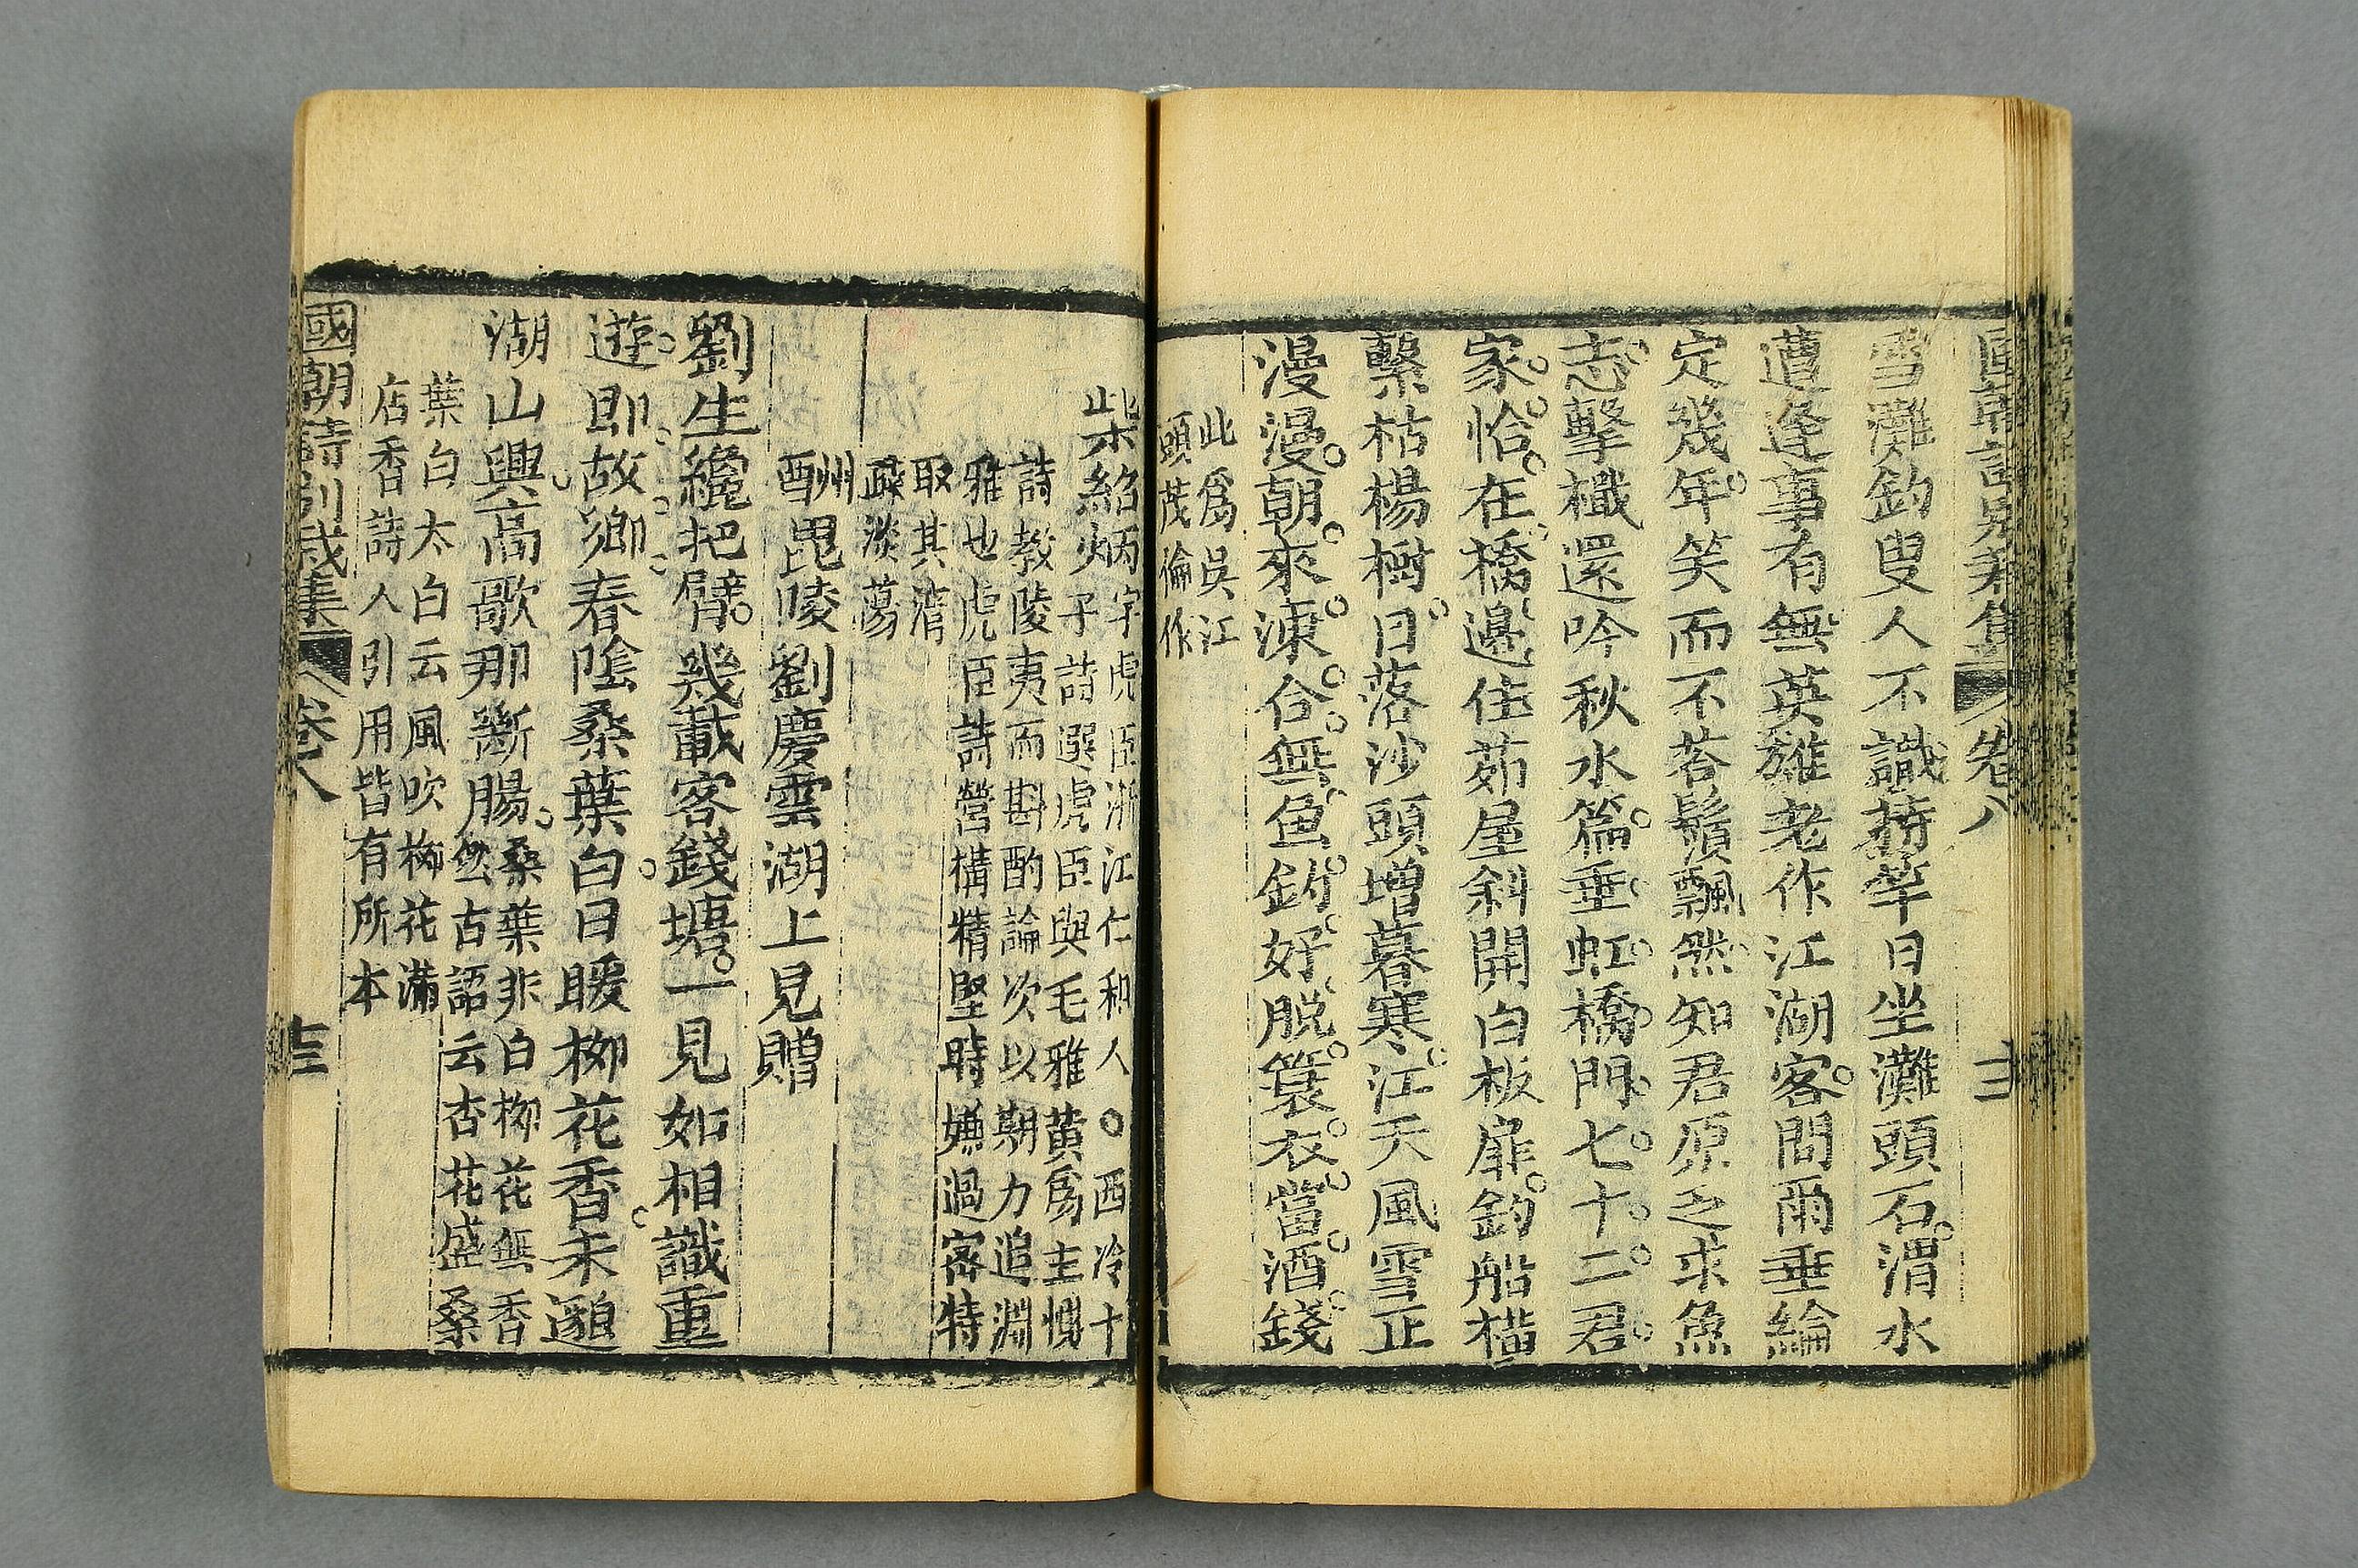 國朝詩別裁集 卷八 十二
雪灘釣叟人不識持竿日坐灘頭石渭水
遭逢事有無英雄老作江湖客問爾垂綸
定幾年笑而不荅鬚飄然知君原之求魚
志擊檝還吟秋水篇垂虹橋門七十二君
家恰在橋邊住茆屋斜開白板扉釣船橫
繫枯楊樹日落沙頭增暮寒江天風雪正
漫漫朝來凍合無魚釣好脫簑衣當酒錢
此爲吳江
頭茂倫作
柴紹炳字虎臣浙江仁和人○西冷十
子詩選虎臣與毛雅黄爲主惻
詩教陵夷而斟酌論次以期力追淵
雅也虎臣詩營構精堅時嫌過密特
取其清
疎淡蕩
酬毘陵劉慶雲湖上見贈
劉生纔把臂幾載客錢塘一見如相識重
遊即故鄉春陰桑葉白日暖栁花香未邈
湖山興高歌那斷腸
桑葉非白栁花無香
然古語云杏花盛桑
葉白太白云風吹栁花滿
店香詩人引用皆有所本
國朝詩別裁集 卷八 十三